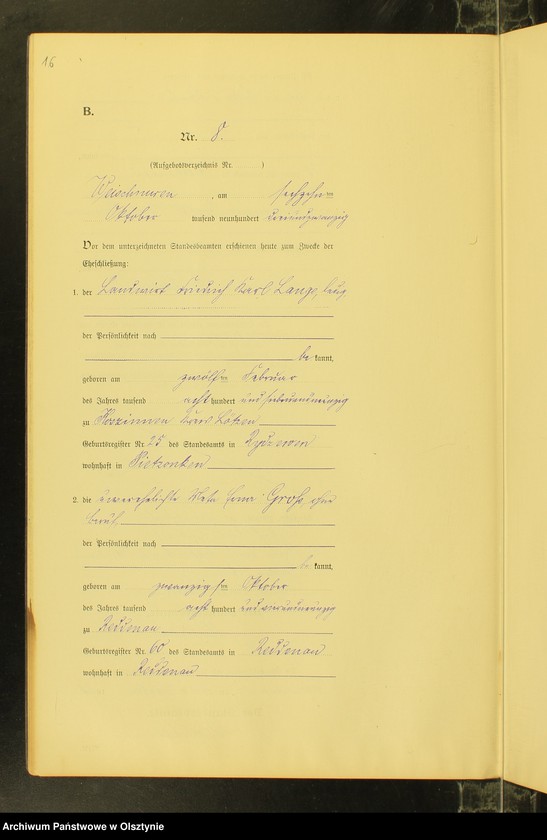 16
B.
Nr. 8.
(Aufgebotsverzeichnis Nr. )
, am sechzehnten
Oktober tausend neunhundert dreiundzwanzig
Vor dem unterzeichneten Standesbeamten erschienen heute zum Zwecke der
Eheschließung:
1. der Landwirt Friedrich Karl Lange, ledig,
der Persönlichkeit nach
be kannt,
geboren am zwölften Februar
des Jahres tausend acht hundert und siebenundneunzig
zu Kreis Lötzen
Geburtsregister Nr. 25 des Standesamts in Rydzewen
wohnhaft in
2. die unverehelichte Meta Erna Groß, ohne
Beruf
der Persönlichkeit nach
be kannt,
geboren am zwanzigsten Oktober
des Jahres tausend acht hundert und neunundneunzig
zu Reddenau
Geburtsregister Nr. 60 des Standesamts in Reddenau
wohnhaft in Reddenau
Archiwum Państwowe w Olsztynie